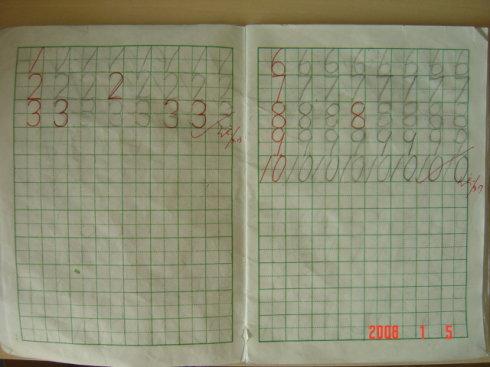 1 1 1 1 1 1 1 1
2 2 2 2 2 2 2 2
3 3 3 3 3 3 3 3
6 6 6 6 6 6 6 6
7 7 7 7 7 7 7 7
8 8 8 8 8 8 8 8
9 9 9 9 9 9 9 9
10 10 10 10 10 10 10 10
2008 1 5